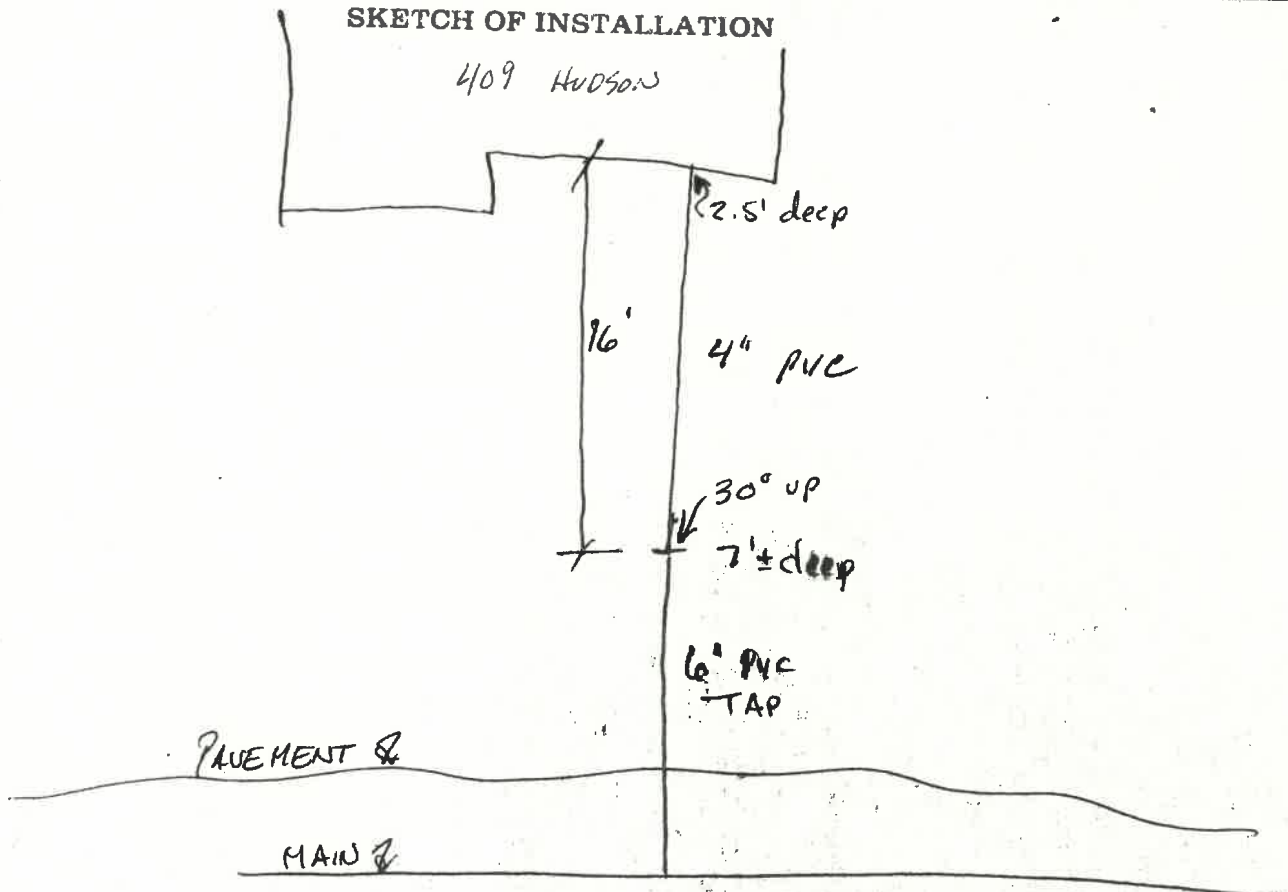 SKETCH OF INSTALLATION
409 HUDSON
2.5' deep
16'
4" PVC
30° UP
7'± deep
6" PVC
TAP
PAVEMENT
MAIN